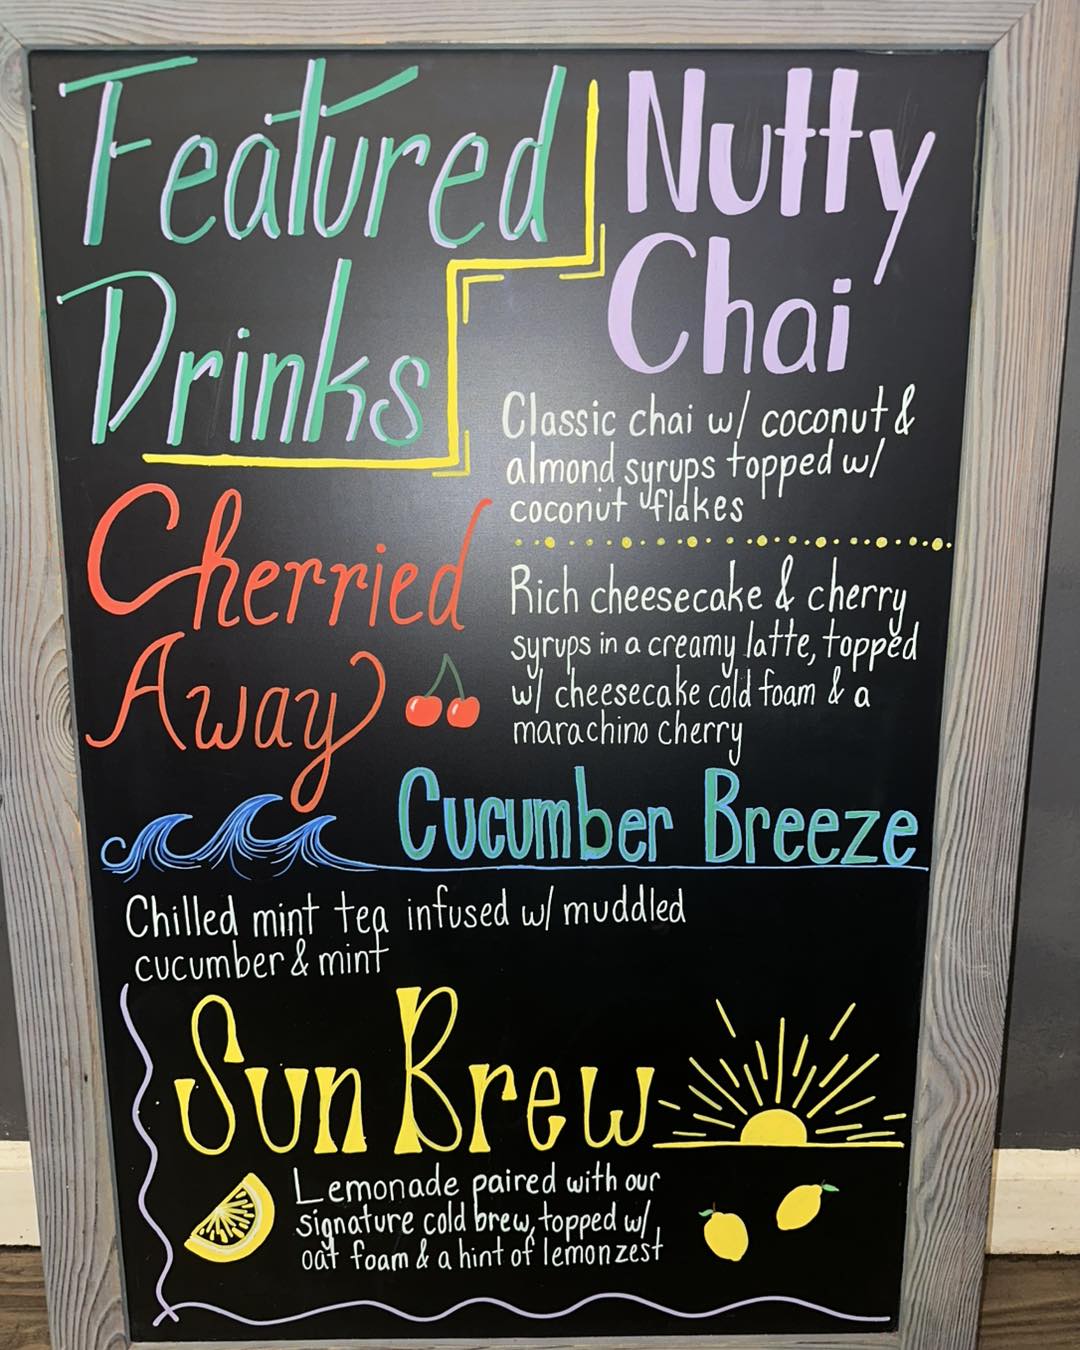 Featured
Drinks
Nutty
Chai
Classic chai w/ coconut &
almond syrups topped w/
coconut flakes
Cherried
Away
Rich cheesecake & cherry
syrups in a creamy latte, topped
w/ cheesecake cold foam & a
marachino cherry
Cucumber Breeze
Chilled mint tea infused w/ muddled
cucumber & mint
Sun Brew
Lemonade paired with our
signature cold brew, topped w/
oat foam & a hint of lemon zest